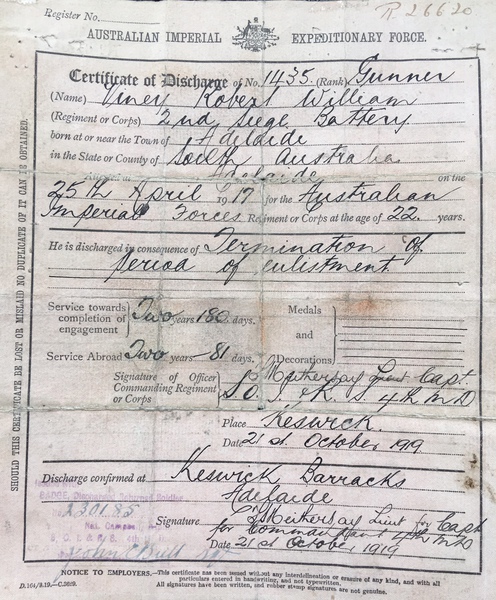 Register No.
R 26620
AUSTRALIAN IMPERIAL EXPEDITIONARY FORCE.
Certificate of Discharge of No. 1435. (Rank) Gunner
(Name) Viney Robert William
(Regiment or Corps) 2nd Siege Battery
born at or near the Town of Adelaide
in the State or County of South Australia
Adelaide on the
25th April 1917 for the Australian
Imperial Forces Regiment or Corps at the age of 22 years.
He is discharged in consequence of Termination of
period of enlistment
Service towards completion of engagement Two years 180 days.
Service Abroad Two years 81 days.
Medals and Decorations
Signature of Officer Commanding Regiment or Corps
S.O. Capt.
4th M D
Place Keswick.
Date 21st October 1919
Discharge confirmed at Keswick Barracks
Adelaide
BADGE, Discharged Returned Soldier
A30185
Signature Lieut for Capt
for Commandant 4th MD
Date 21st October 1919
SHOULD THIS CERTIFICATE BE LOST OR MISLAID NO DUPLICATE OF IT CAN BE OBTAINED.
NOTICE TO EMPLOYERS.—This certificate has been issued without any interdelineation or erasure of any kind, and with all
particulars entered in handwriting, and not typewritten.
All signatures have been written, and rubber stamp signatures are not genuine.